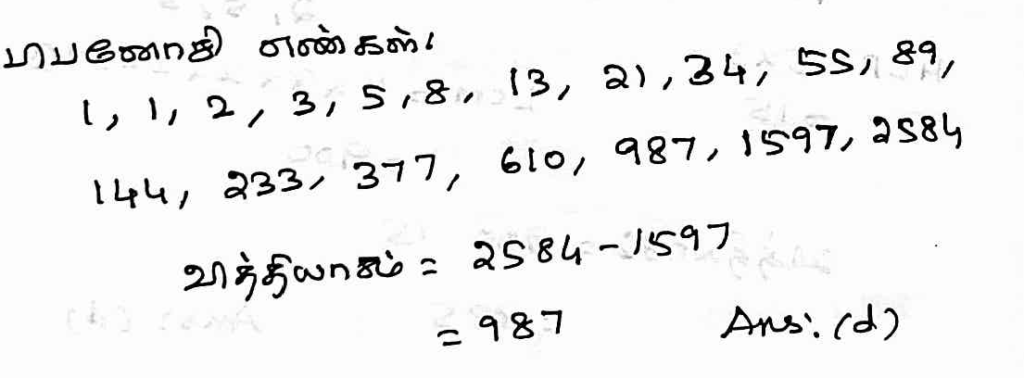 பிபனோசி எண்கள்:
1, 1, 2, 3, 5, 8, 13, 21, 34, 55, 89,
144, 233, 377, 610, 987, 1597, 2584
வித்தியாசம் = 2584 - 1597
= 987 Ans: (d)